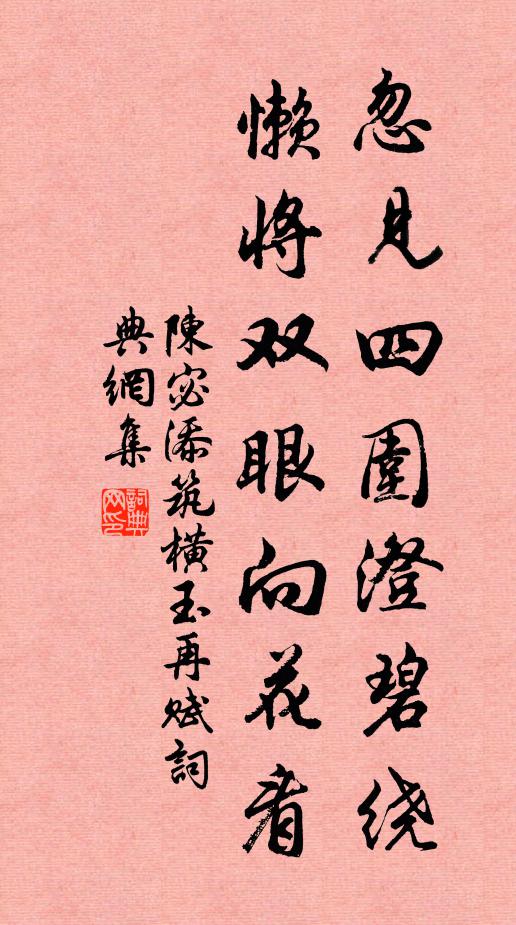 忽见四圍澄碧绕
懒将双眼向花看
陳宓添筑横玉再赋詞
典網集
詞典網印